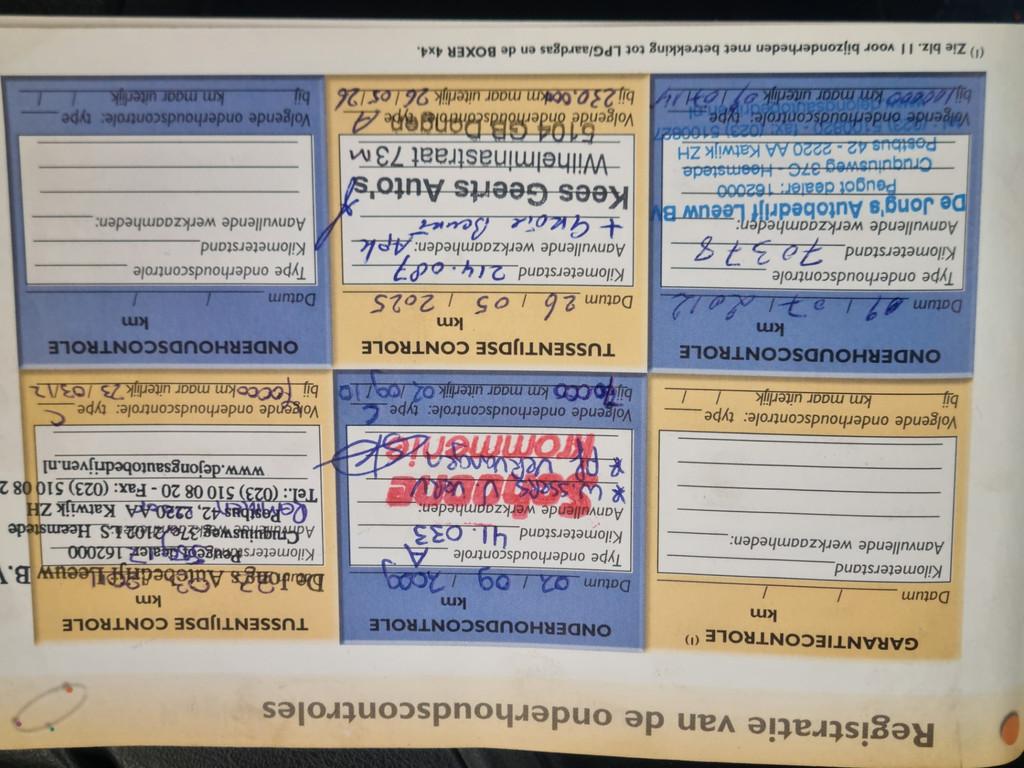 Registratie van de onderhoudscontroles
GARANTIECONTROLE (1)
km
Datum / /
Kilometerstand
Aanvullende werkzaamheden:
Volgende onderhoudscontrole: type
bij km maar uiterlijk / /
ONDERHOUDSCONTROLE
km
Datum 02 / 09 / 2009
Type onderhoudscontrole A
Kilometerstand 41.033
Aanvullende werkzaamheden:
* wissers V verv
* vervangen
Schoene
krommenie
Volgende onderhoudscontrole: type C
bij 70.000 km maar uiterlijk 02 / 09 / 10
TUSSENTIJDSE CONTROLE
km
De Jong's Autobedrijf Leeuw B.V.
Peugeot dealer: 162000
Kilometerstand
Cruquiusweg 37c, 2102 LS Heemstede
Aanvullende werkzaamheden:
Postbus 42, 2220 AA Katwijk ZH
Tel.: (023) 510 08 20 - Fax: (023) 510 08 2
www.dejongsautobedrijven.nl
Volgende onderhoudscontrole: type C
bij 70000 km maar uiterlijk 23 / 03 / 12
ONDERHOUDSCONTROLE
km
Datum 09 / 07 / 2012
Type onderhoudscontrole
Kilometerstand 70378
Aanvullende werkzaamheden:
De Jong's Autobedrijf Leeuw BV
Peugot dealer: 162000
Cruquiusweg 37C - Heemstede
Postbus 42 - 2220 AA Katwijk ZH
Tel.: (023) 5100820 - fax: (023) 5100827
Volgende onderhoudscontrole: type
bij 100000 km maar uiterlijk / 07 / 14
TUSSENTIJDSE CONTROLE
km
Datum 26 / 05 / 2025
Kilometerstand 214.087
Aanvullende werkzaamheden: Apk
+ Grote Beurt
Kees Geerts Auto's
Wilhelminastraat 73
5104 GB Dongen
Volgende onderhoudscontrole: type A
bij 230.000 km maar uiterlijk 26 / 05 / 26
ONDERHOUDSCONTROLE
km
Datum / /
Type onderhoudscontrole
Kilometerstand
Aanvullende werkzaamheden:
Volgende onderhoudscontrole: type
bij km maar uiterlijk / /
(1) Zie blz. 11 voor bijzonderheden met betrekking tot LPG/aardgas en de BOXER 4x4.